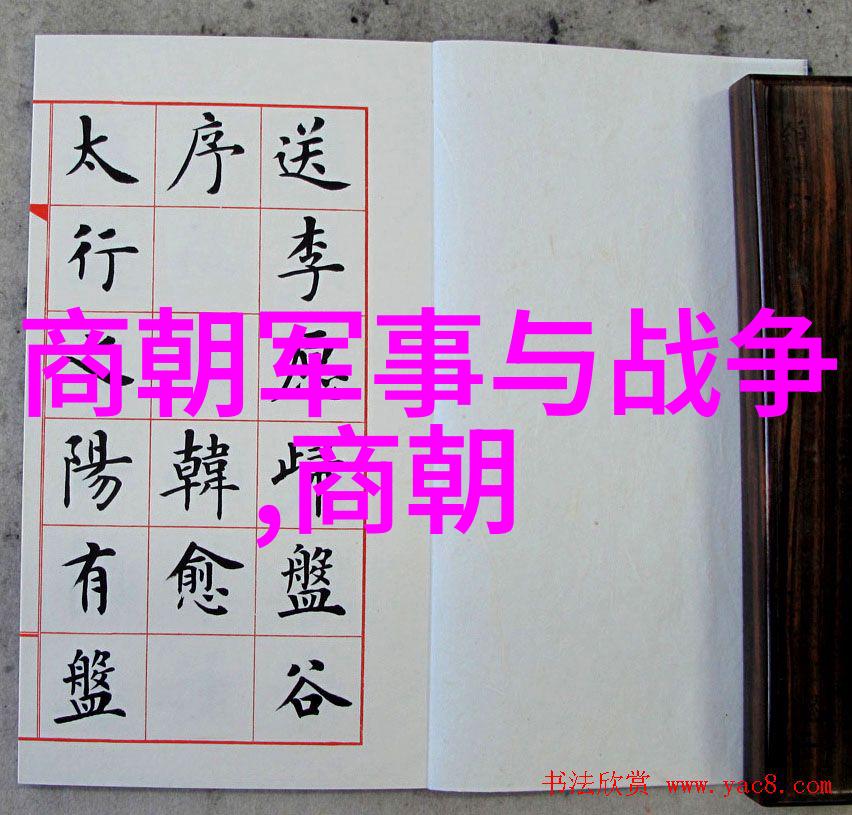 送李愿歸盤谷
序 韓愈
太行之陽有盤
商朝军事与战争
,商朝
书法欣赏 www.yac8.com